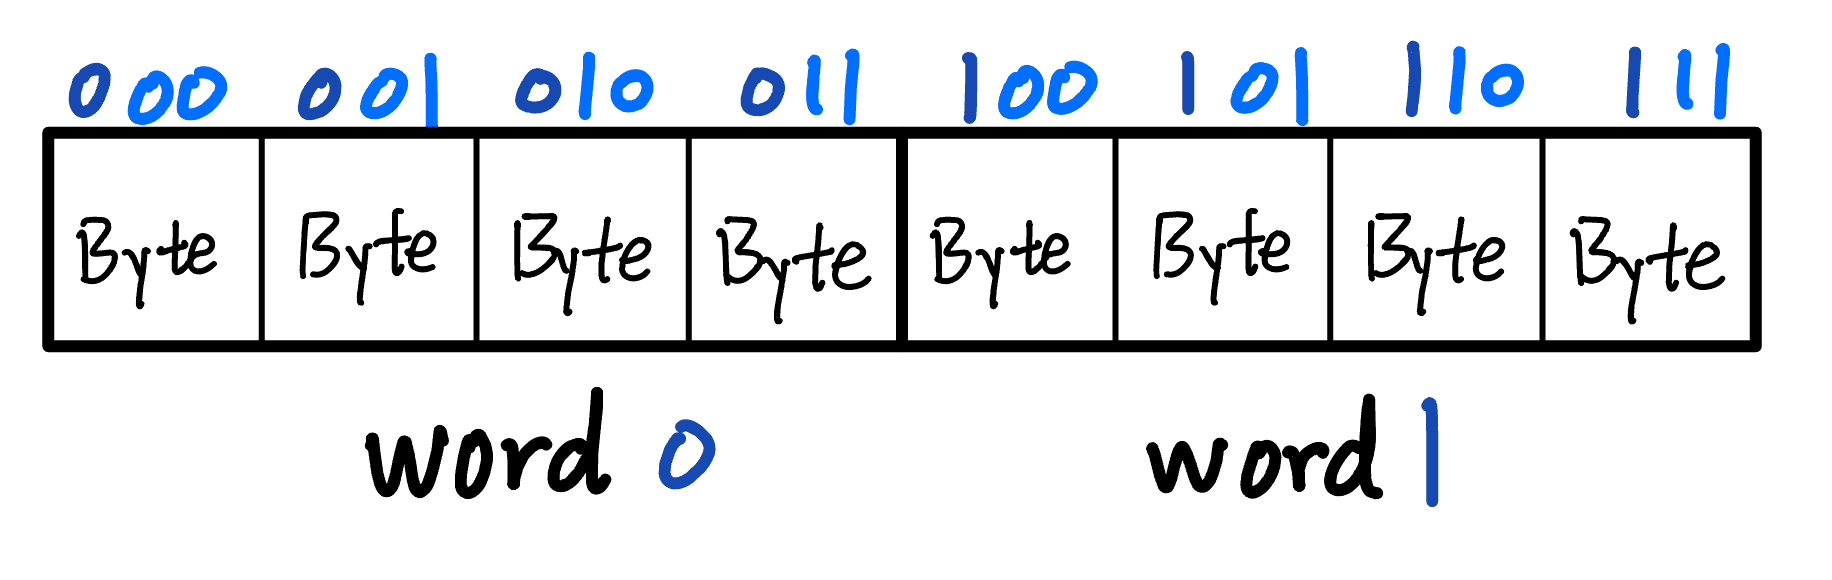 000 001 010 011 100 101 110 111
Byte Byte Byte Byte Byte Byte Byte Byte
word 0 word 1